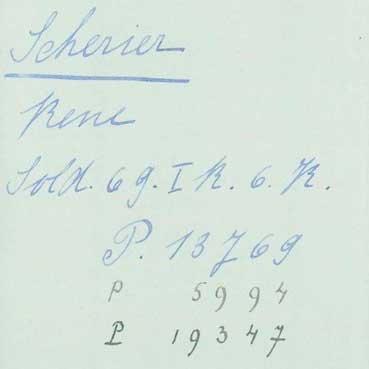 Scherier
Rene
Sold. 69. I R. 6. K.
P. 13769
P 5994
P 19347